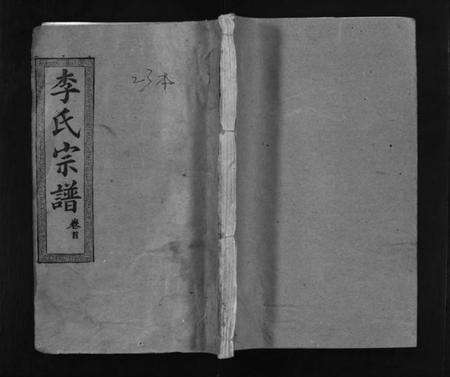 李氏宗譜
卷首
23本